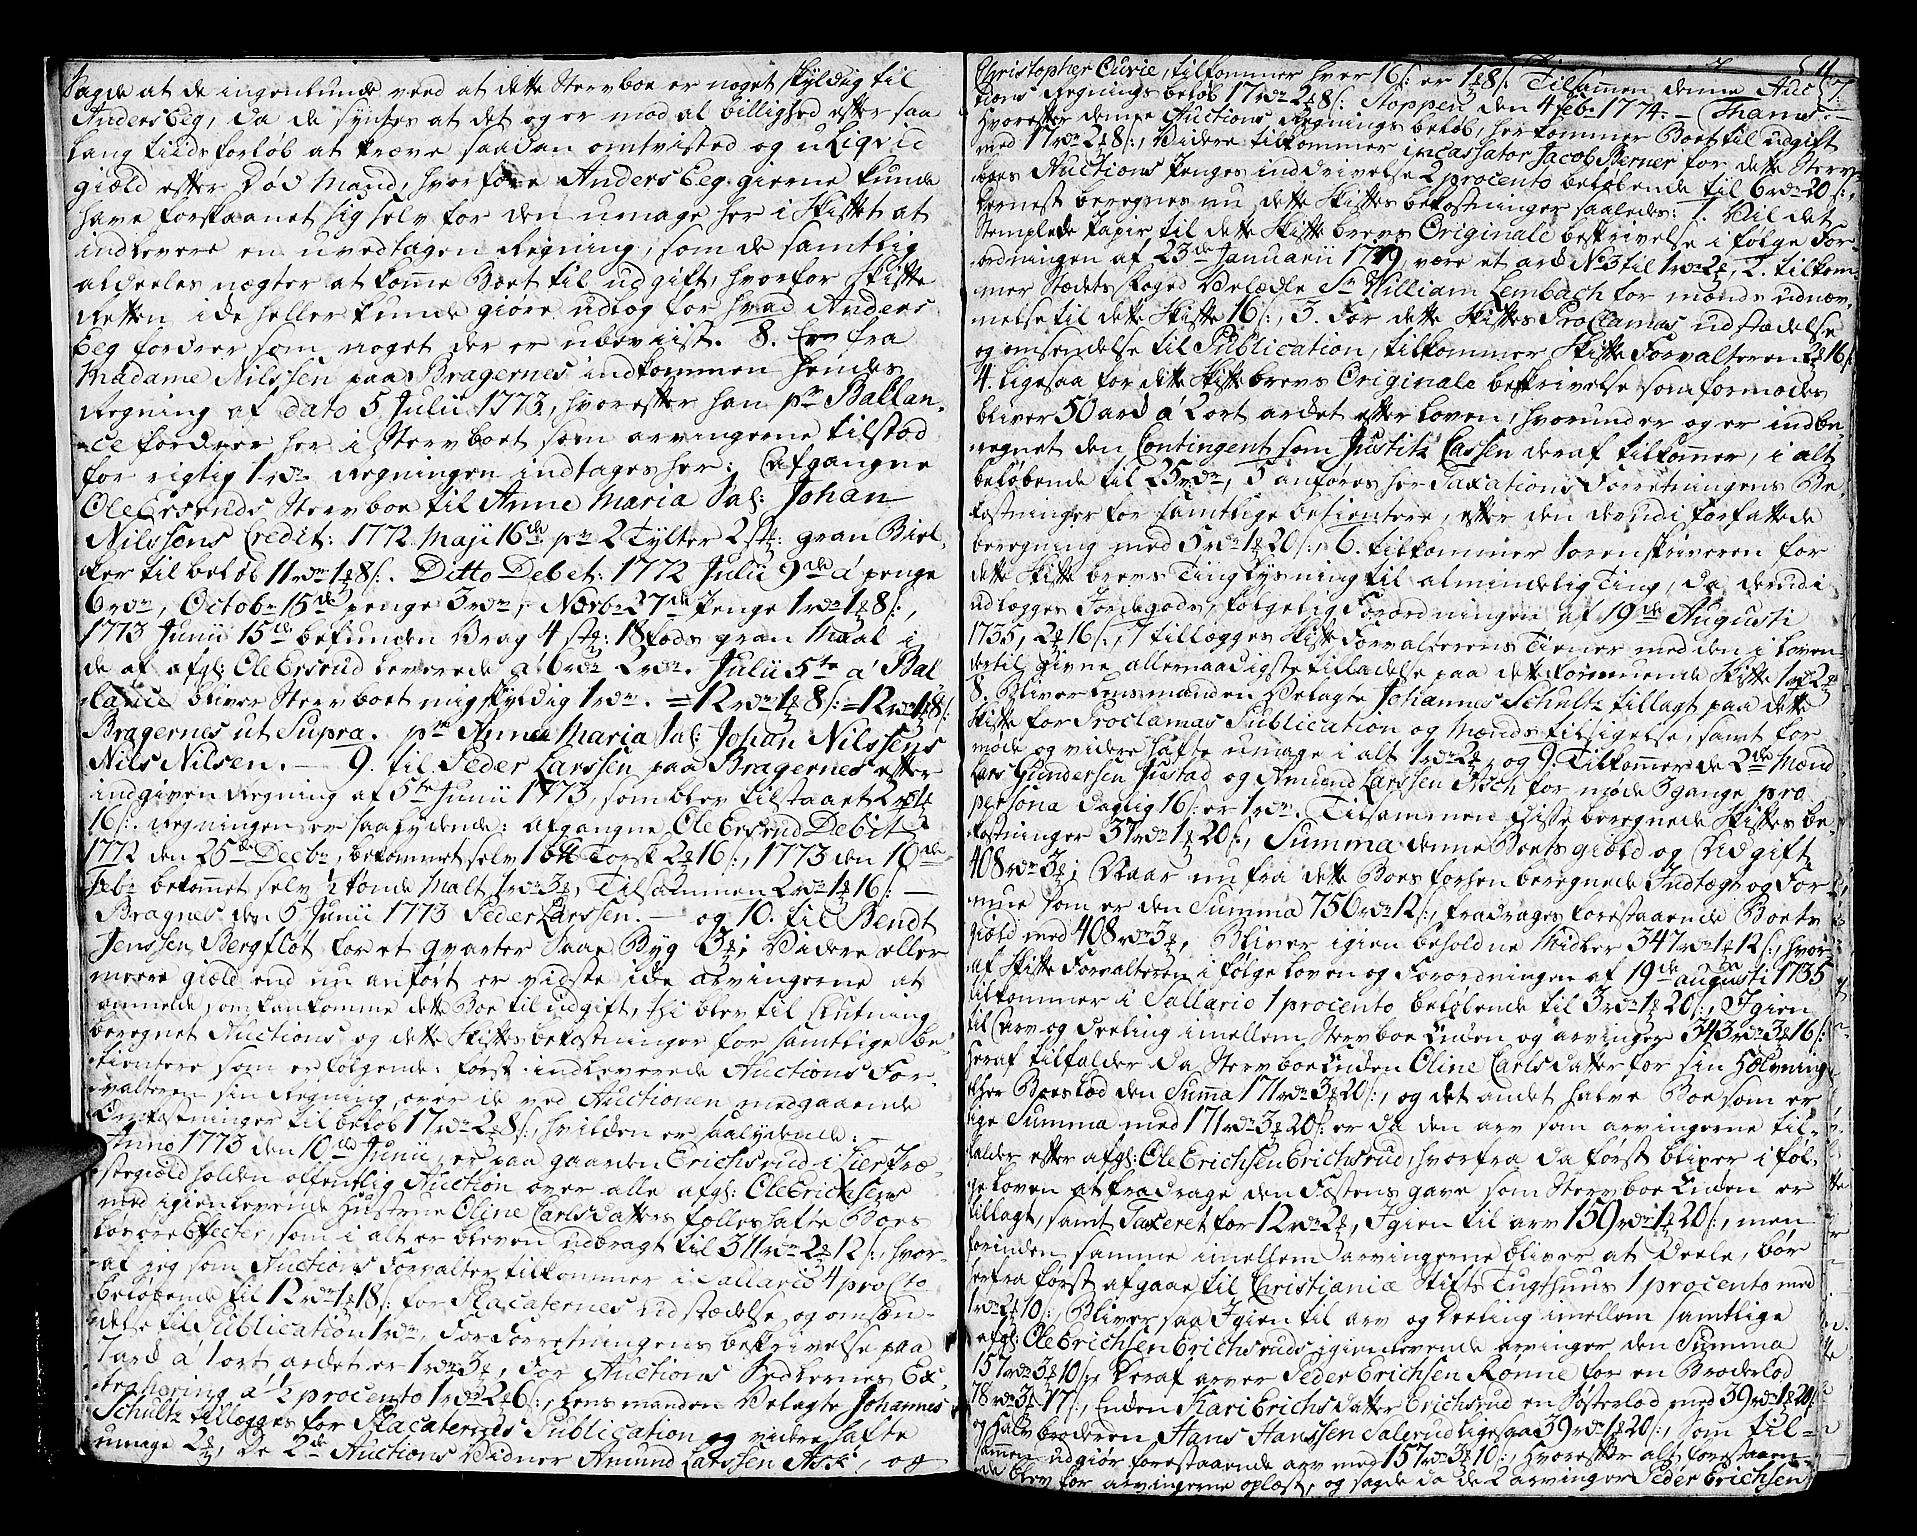 sagde at de ingenlunde veed at dette Sterboe er noget skyldig til
Anders Eeg, da de syntes at det og er mod al billighed efter saa
lang tiids forløb at kræve saadan omtvisted og uliqvid
giæld efter død Mand, hvorfore Anders Eeg gierne kunde
have forskaanet sig selv for den umage her i Skiftet at
indlevere en uvedtagen Regning, som de samtlig
aldeeles nægter at komme Boet til udgift, hvorfor Skifte
Retten ide heller kunde giøre udlog for hvad Anders
Eeg fordrer som noget der er ubeviist. 8. Er fra
Madame Nilssen paa Bragernes indkommen hendes
Regning af dato 5 Julii 1773, hvorefter han pr Ballan-
ce fordrer her i Sterboet som arvingerne tilstod
for rigtig 1 rdr. Regningen indtages her: Afgangne
Ole Ersruds Sterboe til Anne Maria Sal: Johan
Nilssens Credit: 1772 Maji 16de pr 2 Tylter 2 st: gran Biel-
ker til beløb 11 rdr 1 8 s. Ditto Debet: 1772 Julii 9de á penge
6 rdr, Octobr 15de penge 3 rdr, Novbr 27de Penge 1 rdr 1 8 s:,
1773 Junii 15de befunden Brag 4 st: 18 fods gran Maal i
de af afgl: Ole Ersrud leverede a 6 rdr 2 rdr. Julii 5te á Bal
lance bliver Sterboet mig skyldig 1 rdr. = 12 rdr 1 8 s: = 12 rdr 1 8 s:
Bragernes ut Supra. pr Anna Maria Sal: Johan Nilssens
Nils Nilsen. — 9. til Peder Larssen paa Bragernes efter
indgiven Regning af 5te Junii 1773, som blev tilstaaet 2 rdr 1
16 s:. Regningen er saalydende: afgangne Ole Ersrud Debit
1772 den 25de Decbr, bekommet selv 1 Torsk 2 16 s:, 1773 den 10de
Febr bekommet selv ½ tønde Malt, 1 rdr 3, Tilsammen 2 rdr 1 16 s: —
Bragnes den 5 Junii 1773 Peder Larssen. — og 10. til Bendt
Jenssen Bergflot for et qvarter Saae Byg 3; Videre eller
meere giæld end nu anført er vidste ide arvingerne at
anmelde, som kan komme dette Boe til udgift, thi blev til slutning
beregnet Auctions og dette Skiftes bekostninger for samtlige be-
tientere som er følgende: først indleverede Auctions For-
valteren sin Regning over de ved Auctionen medgaaende
Omkostninger til beløb 17 rdr 2 8 s:, hvilden er saalydende: —
Anno 1773 den 10de Junii, er paa gaarden Erichsrud i Lier Præ-
stegield holden offentlig Auction over alle afgl: Ole Erichsens
med igienlevende Hustrue Oline Carlsdatters fælles hafte Boes
Løsøre Efecter, som i alt er bleven udbragt til 311 rdr 2 12 s:, hvor-
af jeg som Auctions Forvalter tilkommer i Sallario 4 pro Cto
beløbende til 12 rdr 1 18 s: for Placaternes udstædelse og omsen-
delse til Publication 1 rdr, For Forretningens beskrivelse paa
7 ard á 1 ort ardet er 1 rdr 3, For Auctions Sedlernes Ex-
trahering á ½ procento 1 rdr 2 6 s:, Lens manden Velagte Johannes
Schultz tillegges for Placaternes Publication og videre hafte
umage 2, De 2de Auctions Vidner Amund Larssen Ask, og
Christopher Curie, tilkommer hver 16 s: er 1 8 s: Tilsammen denne Auc
tions Regnings beløb 17 rdr 2 8 s: Stoppen den 4 Febr 1774. — Thams. —
Hvorefter denne Auctions Regnings beløb, her kommer Boet til udgift
med 17 rdr 2 8 s:, Videre tilkommer incassator Jacob Berner for dette Sterv
boes Auctions Penges inddrivelse 2 procento beløbende til 6 rdr 20 s:,
dernest beregnes nu dette Skiftes bekostninger saaledes: 1. Til det
Stemplede Papir til dette Skifte brevs Originale beskrivelse i følge For-
ordningen af 23de Januarii 1719, være et ard No 3 til 1 rdr 2, 2. tilkom-
mer Stædets Foged Velædle Sr William Lembach for mænds udnæv-
nelse til dette Skifte 16 s:, 3. For dette Skiftes Proclamas udstædelse
og omsendelse til Publication, tilkommer Skifte Forvalteren 2 16 s:
4. ligesaa for dette Skifte brevs Originale beskrivelse som formodes
bliver 50 ard á 2 ort ardet efter Loven, hvorunder og er indbe-
regnet den Contingent som Justitz Cassen deraf tilkommer, i alt
beløbende til 25 rdr, 5 anføres her Taxations Forretningens Be-
kostninger for samtlige besientere, efter den derudi forfattede
beregning med 5 rdr 1 20 s:, 6. tilkommer Sorenskriveren for
dette Skifte brevs Tiinglysning til almindelig Ting, da derudi
udlægges Jordegods, følgelig Forordningen af 19de Augusti
1735, 2 16 s:, 7 tillegges Skifte Forvalterens Tiener med den i Loven
dertil givne allernaadigste tilladelse paa dette formuende Skifte 1 rdr 2
8. Bliver Lensmanden Velagte Johannes Schultz tillagt paa dette
Skifte for Proclamas Publication og Mænds tilsigelse, samt for
møde og videre hafte umage i alt 1 rdr 2, og 9. Tilkommer de 2de Mænd
Lars Gundersen Justad og Amund Larssen Asch for møde 3 gange pro
persona daglig 16 s: er 1 rdr. Tilsammen disse beregnede Skiftes be-
kostninger 37 rdr 1 20 s:, Summa denne Boets giæld og Udgift
408 rdr 3; Naar nu fra dette Boes forhen beregnede Indtægt og For
mue som er den Summa 756 rdr 12 s:, fradrages forestaaende Boets
giæld med 408 rdr 3, Bliver igien beholdne Midler 347 rdr 1 12 s:, hvor
af Skifte Forvalteren i følge Loven og Forordningen af 19de augusti 1735
tilkommer i Sallario 1 procento, beløbende til 3 rdr 1 20 s:, Igien
til Arv og Deeling imellem Sterboe Enden og arvinger 343 rdr 3 16 s:
heraf tilfalder da Sterboe Enden Oline Carlsdatter for sin Hovning
eller Boeslod den Summa 171 rdr 3 20 s:, og det andet halve Boe som er
lige Summa med 171 rdr 3 20 s: er da den arv som arvingerne til-
falder efter afgl: Ole Erichsen Erichsrud, hvorfra da først bliver i føl-
ge Loven at fradrage den Fæstens gave som Sterboe Enden er
tillagt, samt Taxeret for 12 rdr 2, Igien til arv 159 rdr 1 20 s:, men
forinden samme imellem arvingerne bliver at deele, bør
herfra først afgaae til Christiania Stifts Tugthuus 1 procento med
1 rdr 2 10: Bliver saa Igien til arv og deeling imellem samtlige
afgl: Ole Erichsen Erichsruds igienlevende arvinger den Summa
157 rdr 3 10 s: Deraf arver Peder Erichsen Rønne for en Broderlod
78 rdr 3 17 s:, Enden Kari Erichsdatter Erichsrud en Søsterlod med 39 rdr 1 20 s:
og Halv broderen Hans Hanssen Salerud ligesaa 39 rdr 1 20 s:, Som til-
sammen udgiør forestaaende arv med 157 rdr 3 10 s:, Hvorefter alt forestaaen-
de blev for arvingerne oplæst, og sagde da de 2 arvinger Peder Erichsen